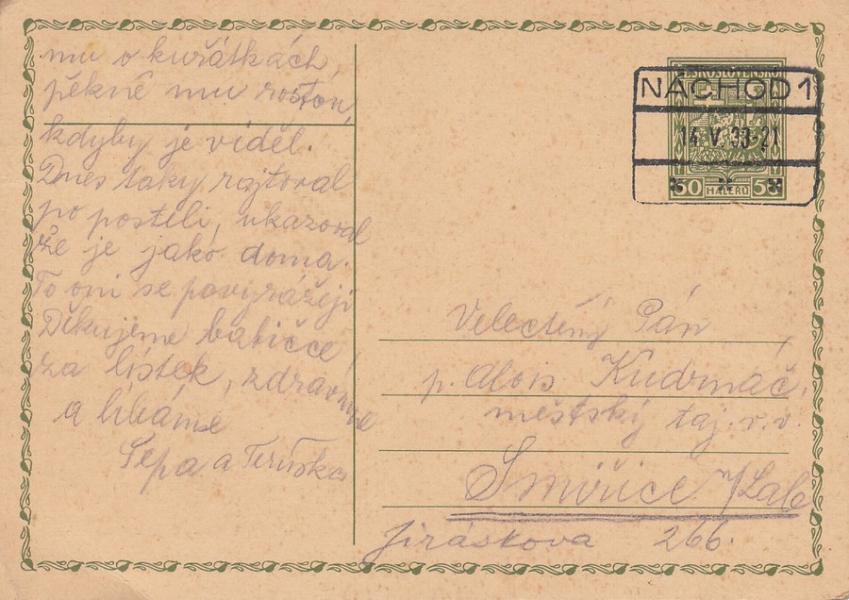 mu o kuřátkách,
pěkně mu rostou,
kdyby je viděl.
Dnes taky rajtoval
po posteli, ukazoval
že je jako doma.
To oni se
Děkujeme babičce
za lístek, zdravíme
a líbáme
Pepa a Teruška
ČESKOSLOVENSKO
NÁCHOD 1
14. V. 33-21
50 HALÉŘŮ 50
Velectěný Pán
p. Alois Kudrnáč,
městský taj. v. v.
Smiřice n/Lab.
Jiráskova 266.